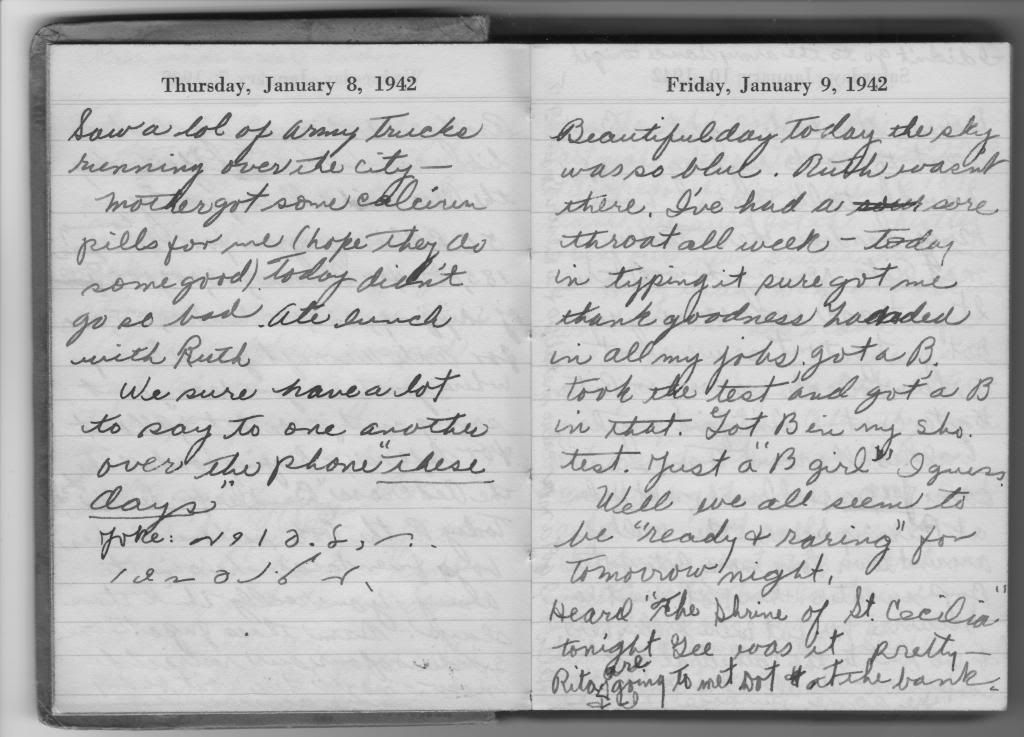 Thursday, January 8, 1942
Saw a lot of army trucks
running over the city —
mother got some calcium
pills for me (hope they do
some good). Today didn't
go so bad. Ate lunch
with Ruth
We sure have a lot
to say to one another
over the phone "these
days"
Joke:
Friday, January 9, 1942
Beautiful day today the sky
was so blue. Ruth wasn't
there. I've had a sour sore
throat all week – today
in typing it sure got me
thank goodness handed
in all my jobs, got a B,
took the test and got a B
in that. Got B in my sho.
test. Just a "B girl" I guess.
Well we all seem to
be "ready & raring" for
tomorrow night.
Heard "The Shrine of St. Cecilia"
tonight Gee was it pretty —
Rita & I are going to met Dot at the bank.